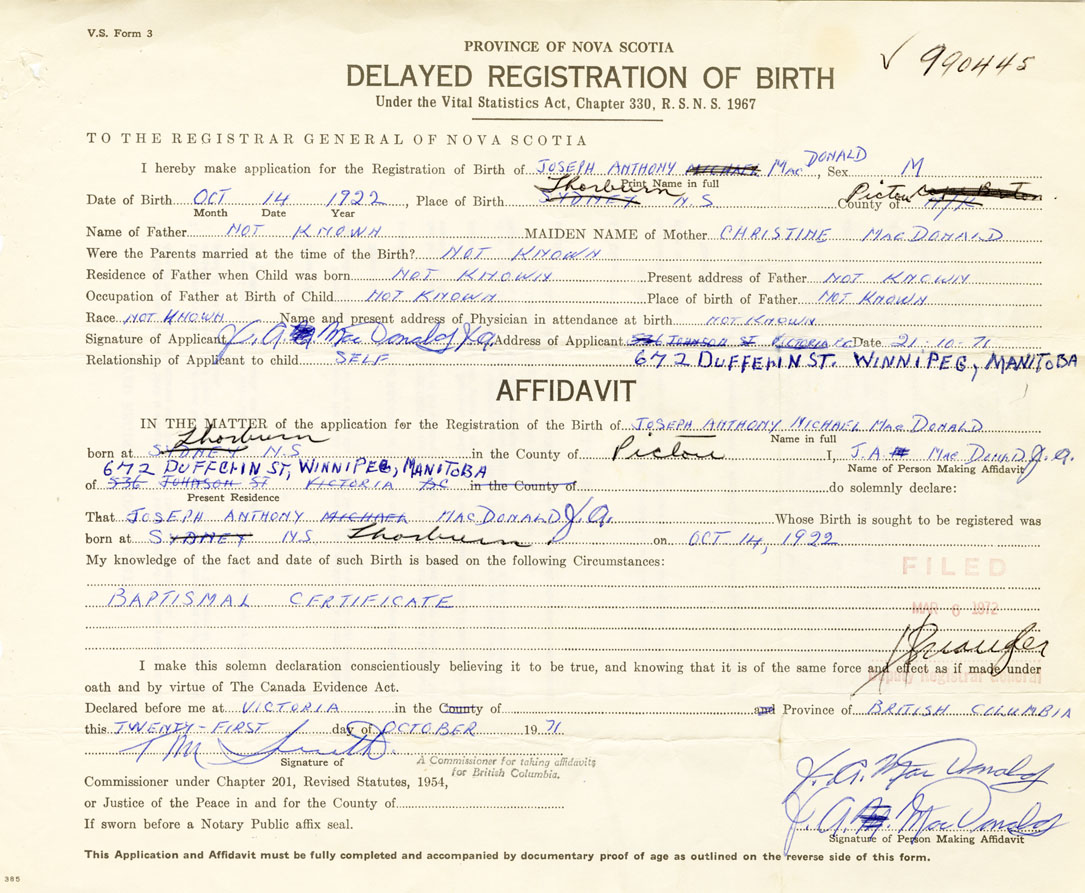 V.S. Form 3
PROVINCE OF NOVA SCOTIA
✓ 990445
DELAYED REGISTRATION OF BIRTH
Under the Vital Statistics Act, Chapter 330, R.S.N.S. 1967
TO THE REGISTRAR GENERAL OF NOVA SCOTIA
I hereby make application for the Registration of Birth of JOSEPH ANTHONY MICHAEL MacDONALD, Sex M
Print Name in full
Date of Birth OCT 14 1922, Place of Birth SYDNEY Thorburn N.S County of Pictou
Month Date Year
Name of Father NOT KNOWN MAIDEN NAME of Mother CHRISTINE MACDONALD
Were the Parents married at the time of the Birth? NOT KNOWN
Residence of Father when Child was born NOT KNOWN Present address of Father NOT KNOWN
Occupation of Father at Birth of Child NOT KNOWN Place of birth of Father NOT KNOWN
Race NOT KNOWN Name and present address of Physician in attendance at birth NOT KNOWN
Signature of Applicant J. A. MacDonald J.A. Address of Applicant 536 JOHNSON ST VICTORIA BC Date 21-10-71
Relationship of Applicant to child SELF 672 DUFFERIN ST. WINNIPEG, MANITOBA
AFFIDAVIT
IN THE MATTER of the application for the Registration of the Birth of JOSEPH ANTHONY MICHAEL MACDONALD
Name in full
born at SYDNEY Thorburn N.S in the County of Pictou I, J.A. MACDONALD J.A.
Name of Person Making Affidavit
672 DUFFERIN ST, WINNIPEG, MANITOBA
of 536 JOHNSON ST VICTORIA BC in the County of do solemnly declare:
Present Residence
That JOSEPH ANTHONY MICHAEL MACDONALD J.A. Whose Birth is sought to be registered was
born at SYDNEY N.S Thorburn on OCT 14, 1922
My knowledge of the fact and date of such Birth is based on the following Circumstances:
FILED
BAPTISMAL CERTIFICATE
MAR 6 1972
I make this solemn declaration conscientiously believing it to be true, and knowing that it is of the same force and effect as if made under
Deputy Registrar General
oath and by virtue of The Canada Evidence Act.
Declared before me at VICTORIA in the County of and Province of BRITISH COLUMBIA
this TWENTY-FIRST day of OCTOBER 1971
Signature of
A Commissioner for taking affidavits
for British Columbia.
Commissioner under Chapter 201, Revised Statutes, 1954,
J. A. MacDonald
or Justice of the Peace in and for the County of
J. A. MacDonald
If sworn before a Notary Public affix seal.
Signature of Person Making Affidavit
This Application and Affidavit must be fully completed and accompanied by documentary proof of age as outlined on the reverse side of this form.
385